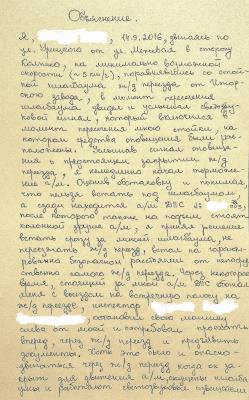 Объяснение.
Я, 14.9.2016, двигаясь по
ул. Урицкого от ул. Менжвая в сторону
Колпино, на минимально возможной
скорости (~5 км/ч), поравнявшись со стой-
кой шлагбаума ж/д переезда от Ижор-
ского завода, в момент пересечения
шлагбаума увидел и услышал светозву-
ковой сигнал, который включился в
момент пересечения мною стойки, на
которой средства оповещения были рас-
положены. Услышав сигнал оповеще-
ния о предстоящем закрытии ж/д
переезда, я немедленно начал торможе-
ние а/м. Оценив обстановку и понимая,
что нельзя встать под шлагбаумом,
а сзади находится а/м ДПС №
после которого также на подъеме стояли
колонной другие а/м, я принял решение
встать сразу за линией шлагбаума, не
пересекать ж/д переезд, встал на гаранти-
рованно безопасном расстоянии от непосред-
ственно самого ж/д переезда. Через некоторое
время, стоящий за мной а/м ДПС объехал
меня с выездом на встречную полосу на
ж/д переезде, инспектор
остановил свою машину
слева от моей и потребовал проехать
вперед, через ж/д переезд и предъявить
документы. Хоть это было и опасно-
двигаться через ж/д переезд когда он за-
крыт для движения а/м, опущены шлагба-
умы и работают светозвуковые извещатели